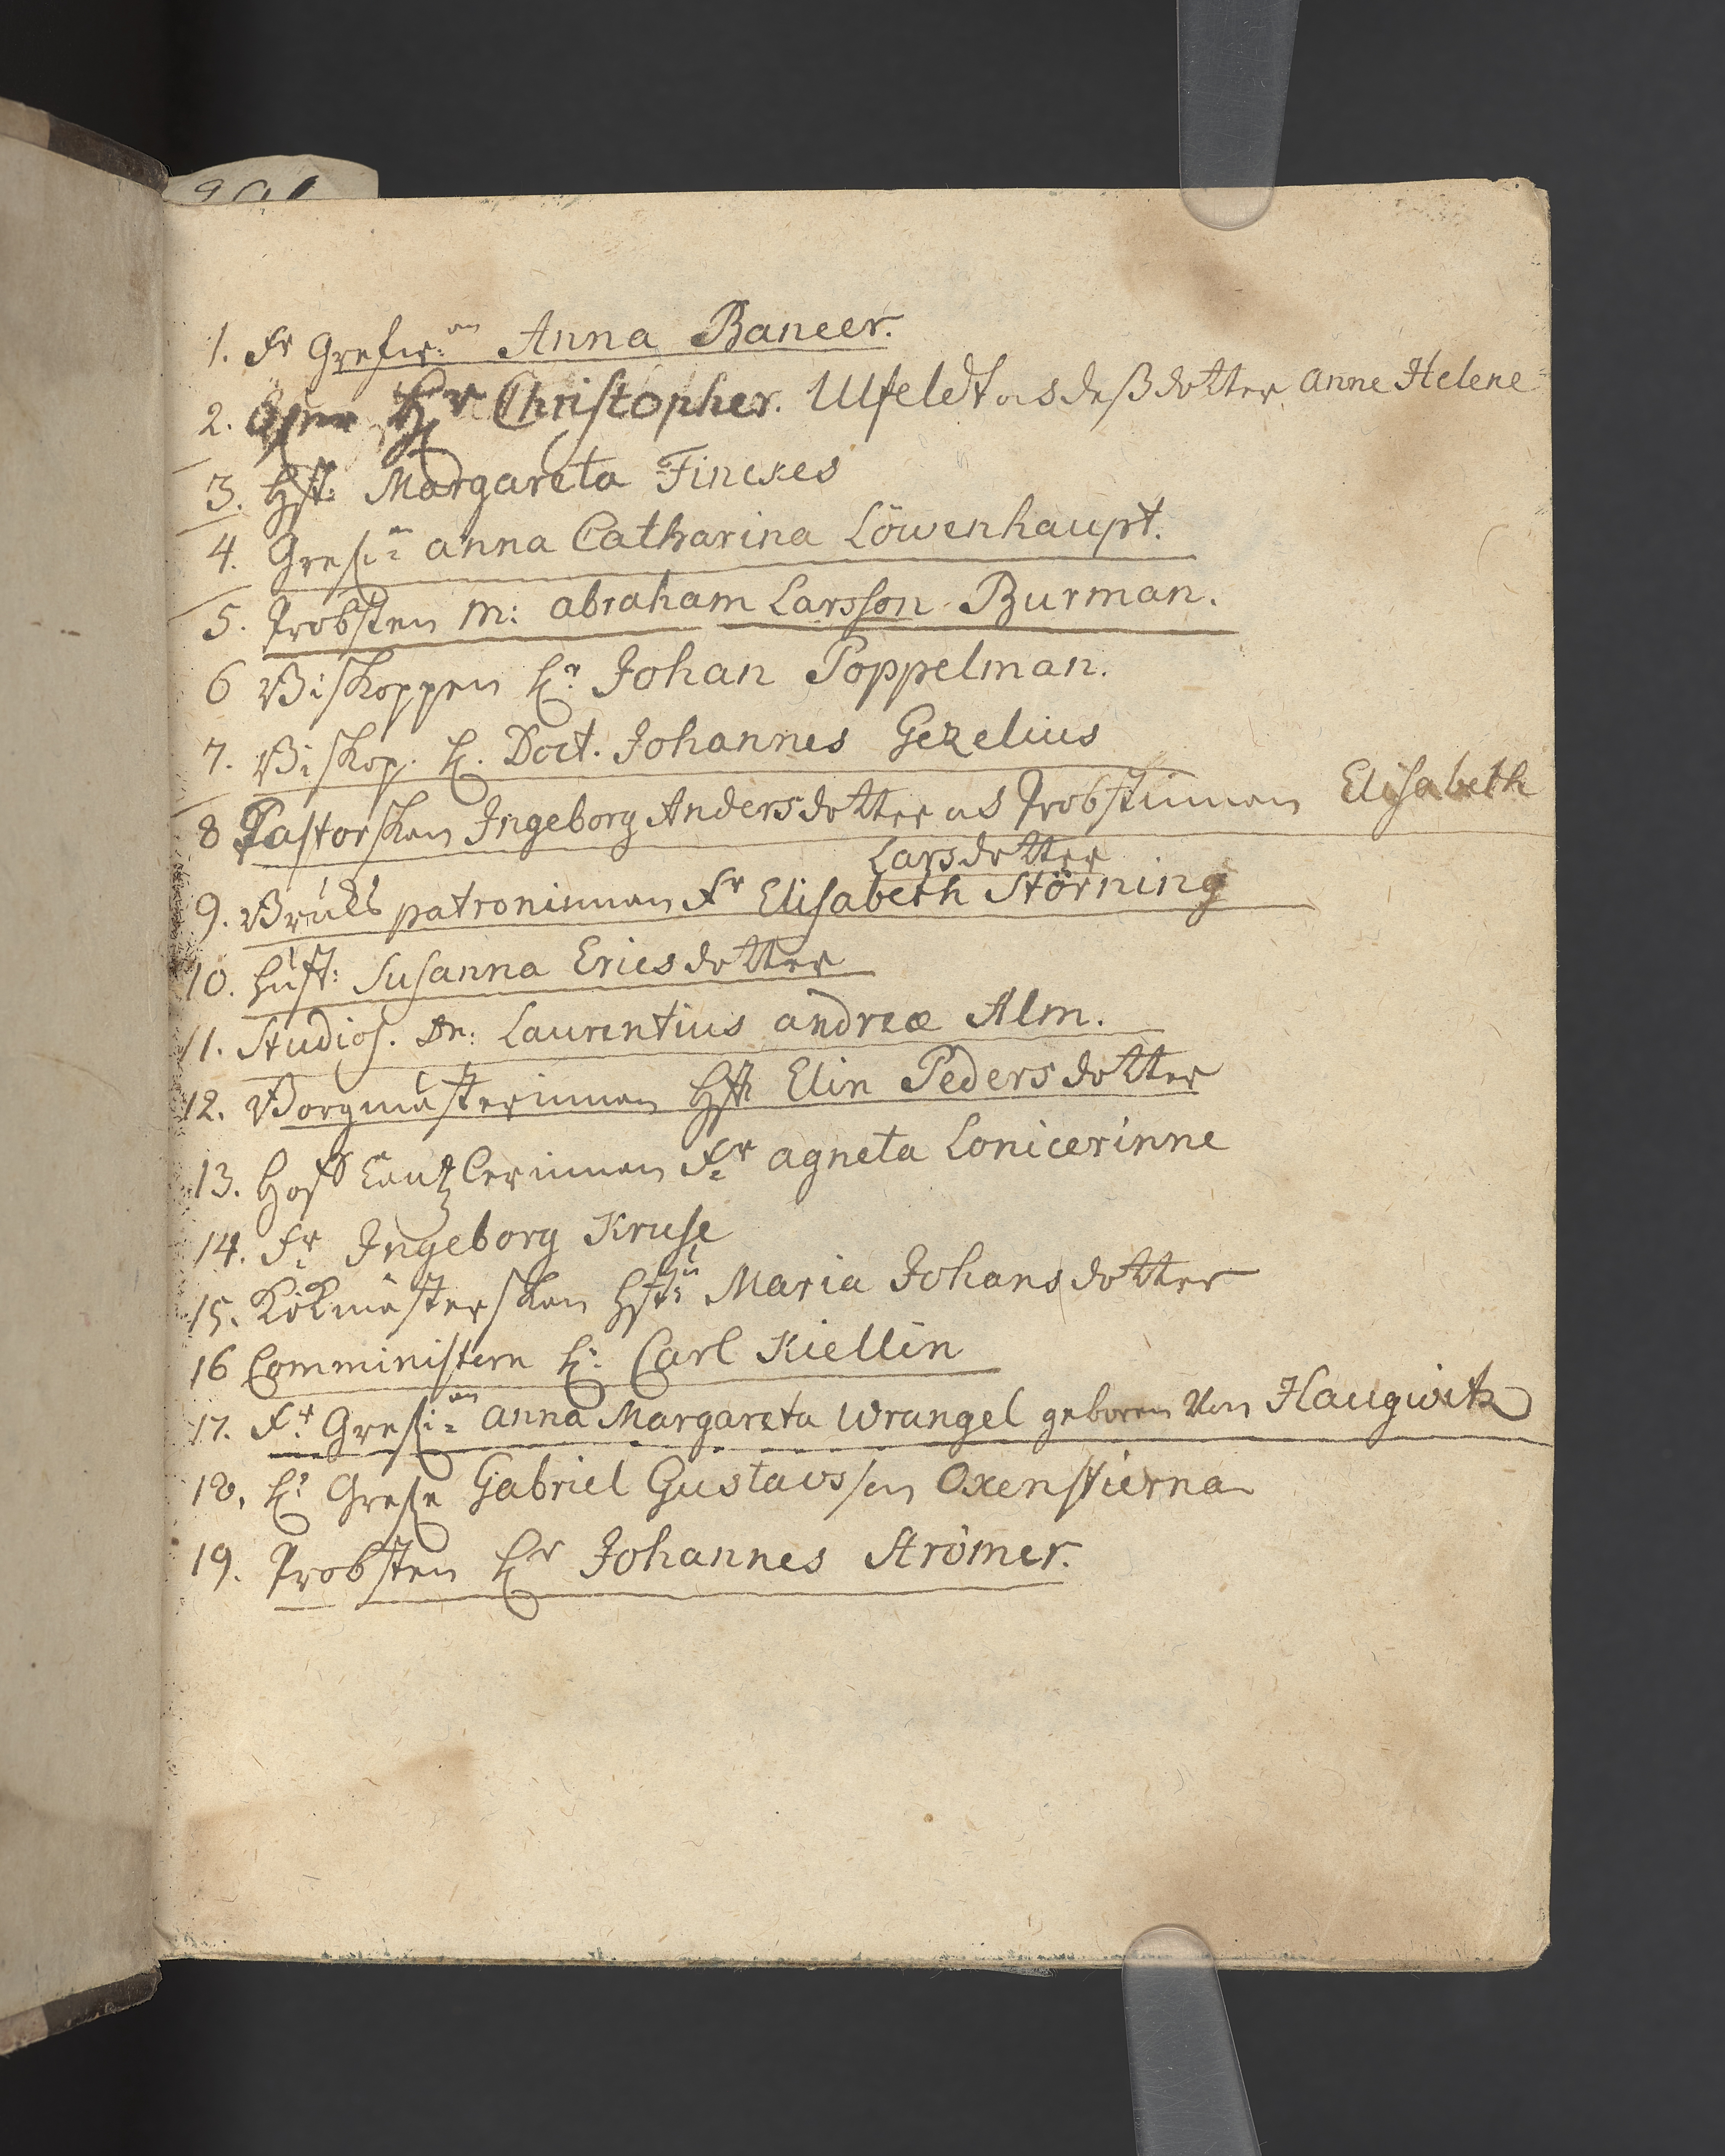 1. Fr Grefin:an Anna Baneer.
2. Hr Christopher. Ulfeldt o s deß dotter anne Helene
3. Hst: Margareta Finckes
4. Grefi:an anna Catharina Löwenhaupt.
5. Probsten M: abraham Larsson Burman.
6 Biskoppen H:r Johan Poppelman.
7. Biskop. H. Doct. Johannes Gezelius
8 Pastorskan Ingeborg Andersdotter o s Probstinnan Elisabeth
Larsdotter
9. Bruks patroninnan Fr Elisabeth Störning
10. Hust: Susanna Ericsdotter
11. Studios. Dn: Laurentius andreæ Alm.
12. Borgmästerinnan Hst Elin Pedersdotter
13. Hoff Cantzlerinnan F:r agneta Lonicerinne
14. F:r Ingeborg Kruse
15. Kökmästerskan Hst: Maria Johansdotter
16 Comministern H: Carl Kiellin
17. F:r Grefi:an anna Margareta Wrangel geboren Von Haugwitz
18. H:r Grefe Gabriel Gustavsson Oxenstierna
19. Probsten Hr Johannes Strömer.